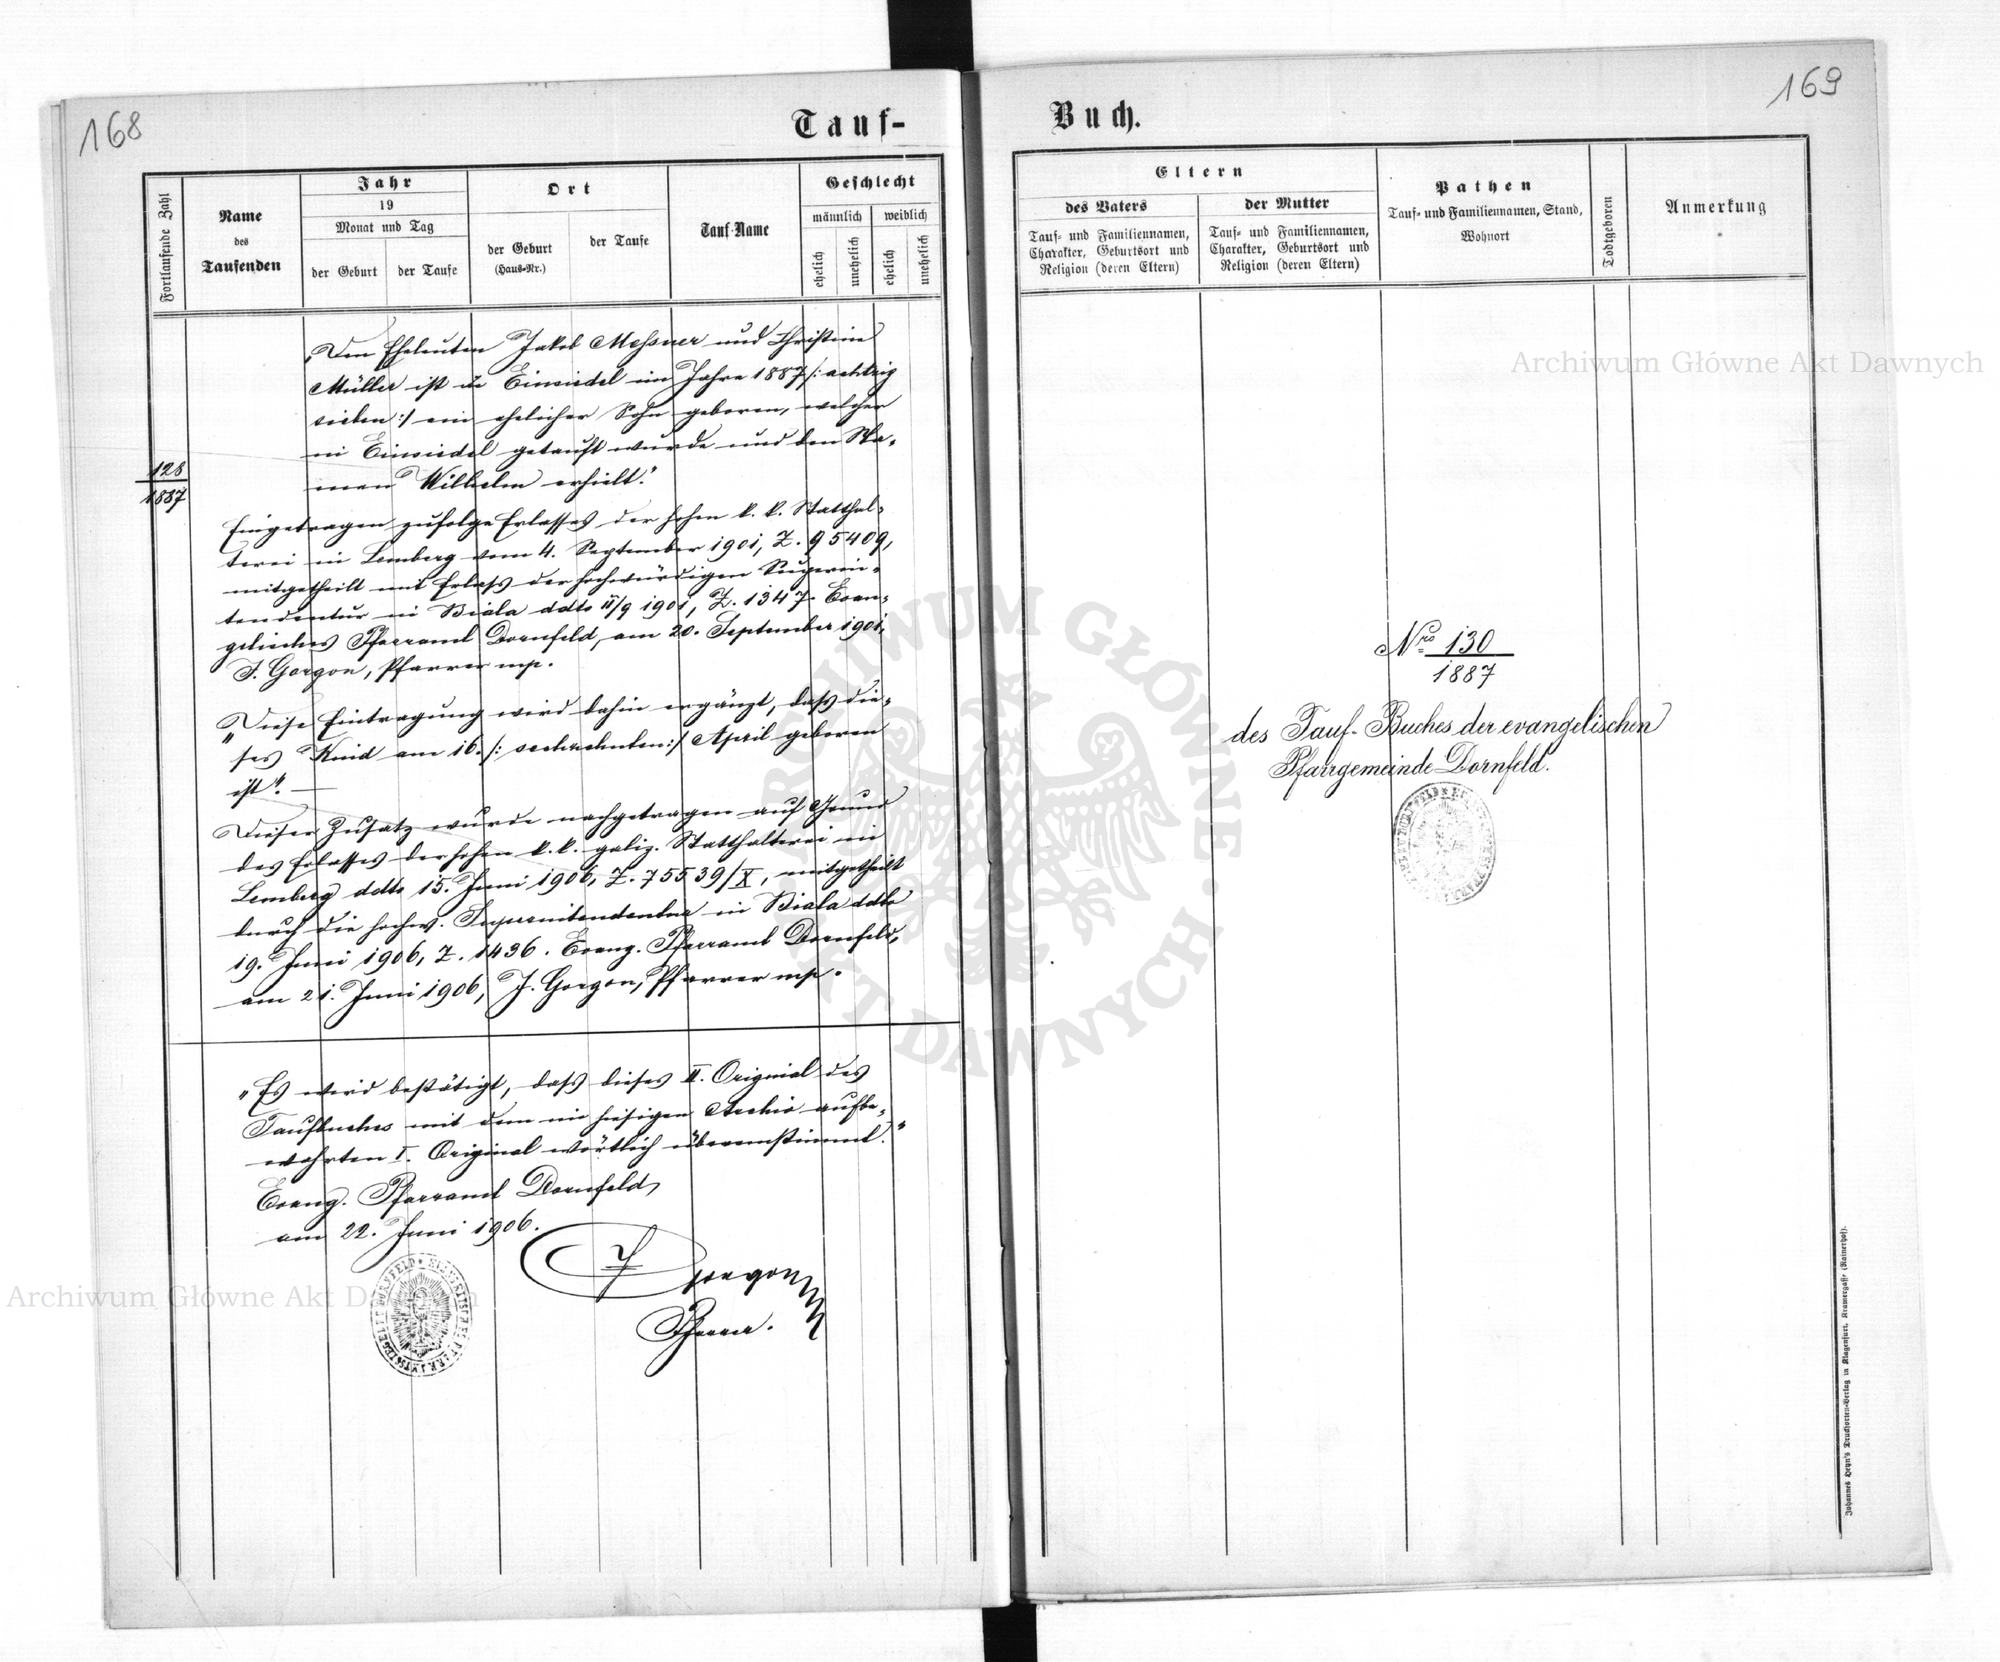 168
Tauf-
Fortlaufende Zahl
Name
des
Taufenden
Jahr
19
Monat und Tag
der Geburt
der Taufe
Ort
der Geburt
(Haus-Nr.)
der Taufe
Tauf-Name
Geschlecht
männlich
weiblich
ehelich
unehelich
ehelich
unehelich
128
1887
„Den Eheleuten Jakob Messner und Christine
Müller ist in Einsiedel im Jahre 1887 /: achtzig
sieben :/ ein ehelicher Sohn geboren, welcher
in Einsiedel getauft wurde und den Na-
men Wilhelm erhielt."
Eingetragen zufolge Erlasses der hohen k. k. Statthal-
terei in Lemberg vom 4. September 1901, Z. 95409,
mitgetheilt mit Erlass der hochwürdigen Superin-
tendentur in Biala ddto 11/9 1901, Z. 1347. Evan-
gelisches Pfarramt Dornfeld, am 20. September 1901.
J. Gorgon, Pfarrer mp.
„Diese Eintragung wird dahin ergänzt, dass die-
ses Kind am 16. /: sechzehnten :/ April geboren
ist". —
Dieser Zusatz wurde nachgetragen auf Grund
des Erlasses der hohen k. k. galiz. Statthalterei in
Lemberg ddto 15. Juni 1906, Z. 75539/X, mitgetheilt
durch die hochw. Superintendentur in Biala ddto
19. Juni 1906, Z. 1436. Evang. Pfarramt Dornfeld,
am 21. Juni 1906, J. Gorgon, Pfarrer mp.
„Es wird bestätigt, dass dieses II. Original des
Taufbuches mit dem im hiesigen Archiv aufbe-
wahrten I. Original wörtlich übereinstimmt."
Evang. Pfarramt Dornfeld,
am 22. Juni 1906.
J Gorgon
Pfarrer.
169
Buch.
Eltern
des Vaters
Tauf- und Familiennamen,
Charakter, Geburtsort und
Religion (deren Eltern)
der Mutter
Tauf- und Familiennamen,
Charakter, Geburtsort und
Religion (deren Eltern)
Pathen
Tauf- und Familiennamen, Stand,
Wohnort
Todtgeboren
Anmerkung
Nro 130
1887
des Tauf-Buches der evangelischen
Pfarrgemeinde Dornfeld.
Johannes Heyn's Drucksorten-Verlag in Klagenfurt, Kramergasse (Rainerhof).
Archiwum Główne Akt Dawnych
Archiwum Główne Akt Dawnych
ARCHIWUM GŁÓWNE · AKT DAWNYCH ·